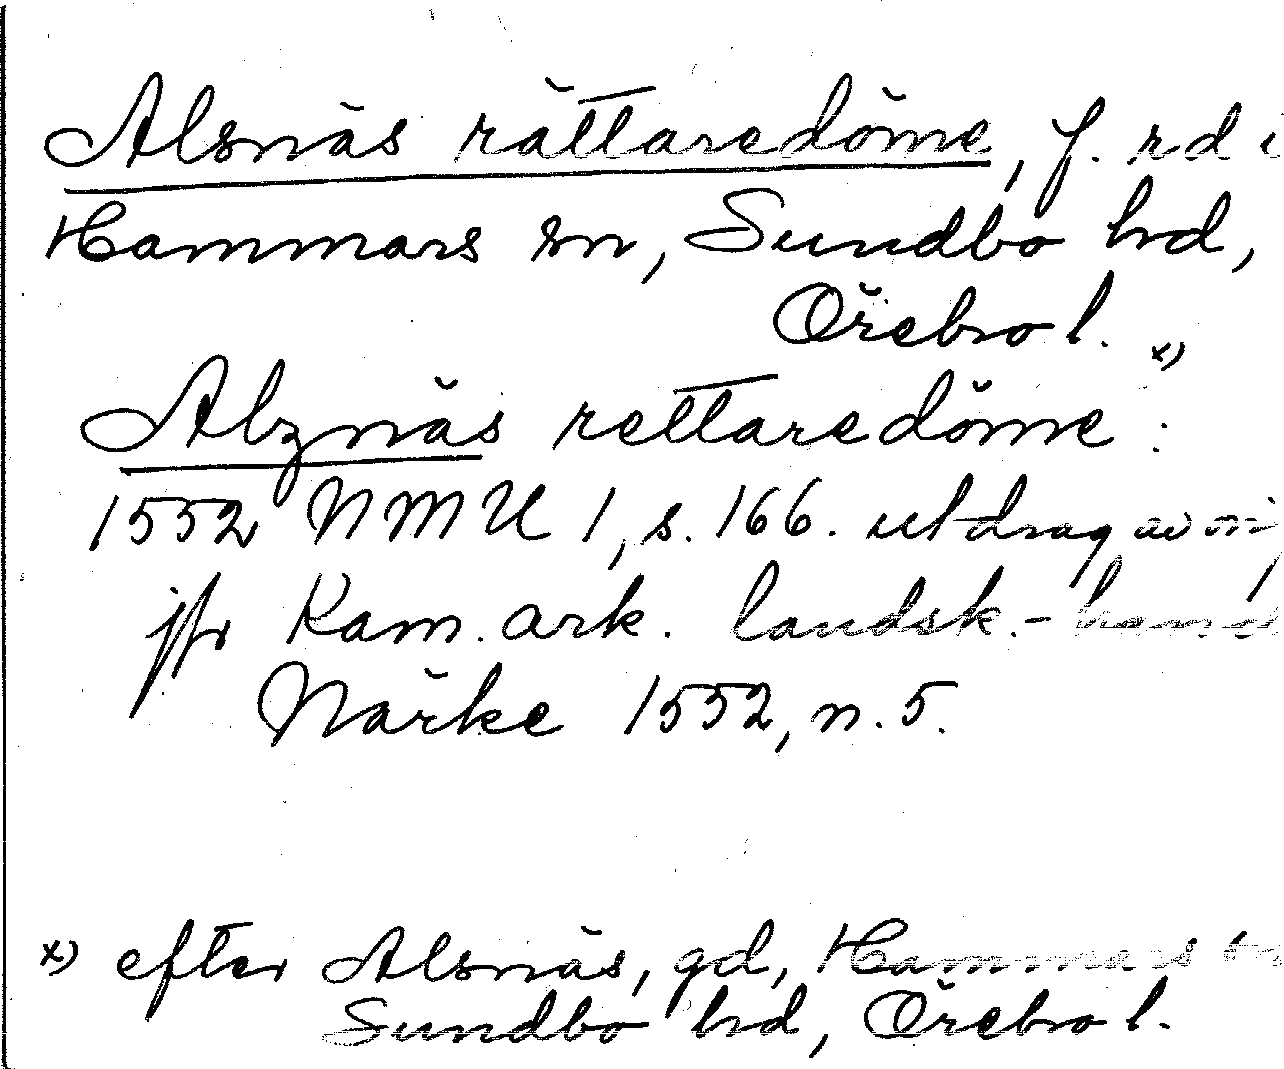 Alsnäs rättaredöme, f. rd i
Hammars sn, Sundbo hd,
Örebro l.
Alznäs rettaredöme x) :
1552 NMU 1, s. 166. utdrag av
jfr Kam. ark. landsk.-hand
Närke 1552, n. 5.
x) efter Alsnäs, gd, Hammars sn
Sundbo hd, Örebro l.